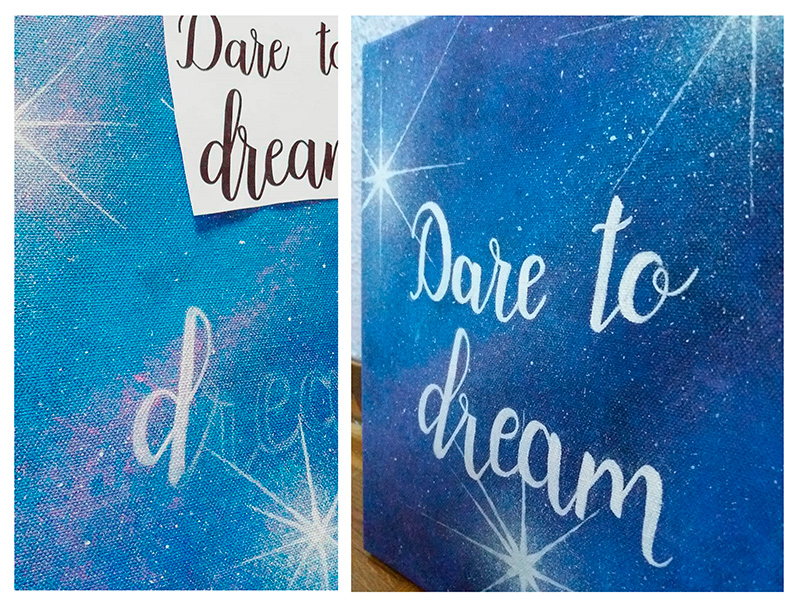 Dare to
dream
drea
Dare to
dream